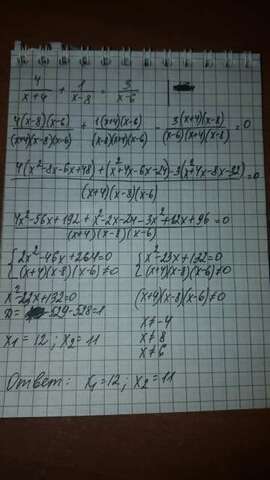 4/(x+4) + 1/(x-8) = 3/(x-6)
4(x-8)(x-6)/((x+4)(x-8)(x-6)) + 1(x+4)(x-6)/((x-8)(x+4)(x-6)) - 3(x+4)(x-8)/((x-6)(x+4)(x-8)) = 0
(4(x²-8x-6x+48)+(x²+4x-6x-24)-3(x²+4x-8x-32))/((x+4)(x-8)(x-6)) = 0
(4x²-56x+192+x²-2x-24-3x²+12x+96)/((x+4)(x-8)(x-6)) = 0
{2x²-46x+264=0 {x²-23x+132=0
{(x+4)(x-8)(x-6)≠0 {(x+4)(x-8)(x-6)≠0
x²-23x+132=0 (x+4)(x-8)(x-6)≠0
D= 529-528=1 x≠-4
x1=12; x2=11 x≠8
x≠6
Ответ: x1=12; x2=11